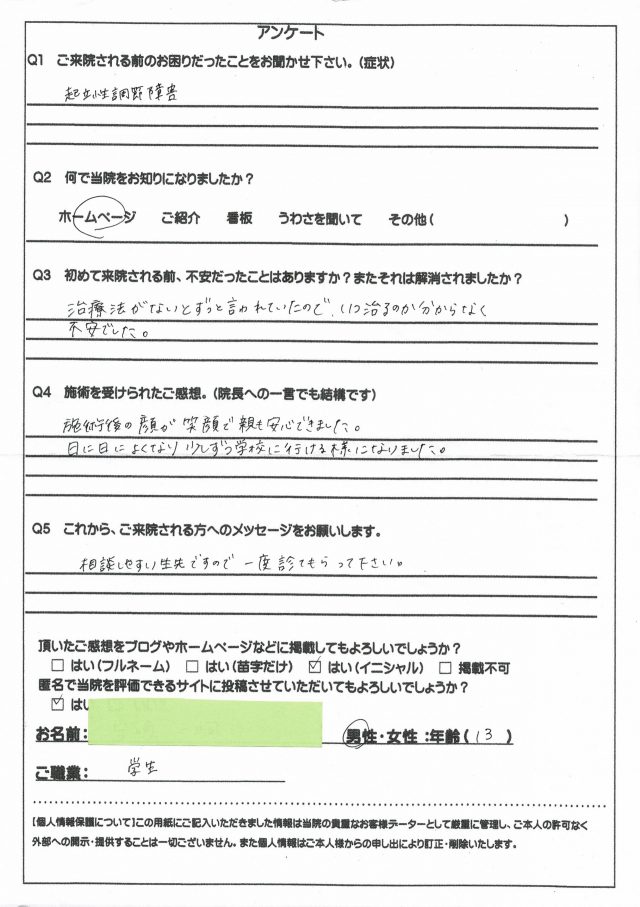 アンケート
Q1 ご来院される前のお困りだったことをお聞かせ下さい。(症状)
起立性調節障害
Q2 何で当院をお知りになりましたか?
ホームページ ご紹介 看板 うわさを聞いて その他( )
Q3 初めて来院される前、不安だったことはありますか?またそれは解消されましたか?
治療法がないとずっと言われていたので、いつ治るのか分からなく
不安でした。
Q4 施術を受けられたご感想。(院長への一言でも結構です)
施術後の顔が笑顔で親も安心できました。
日に日によくなり少しずつ学校に行ける様になりました。
Q5 これから、ご来院される方へのメッセージをお願いします。
相談しやすい先生ですので一度診てもらって下さい。
頂いたご感想をブログやホームページなどに掲載してもよろしいでしょうか?
□ はい(フルネーム) □ はい(苗字だけ) ☑ はい(イニシャル) □ 掲載不可
匿名で当院を評価できるサイトに投稿させていただいてもよろしいでしょうか?
☑ はい
お名前: 男性・女性:年齢(13)
ご職業: 学生
【個人情報保護について】この用紙にご記入いただきました情報は当院の貴重なお客様データーとして厳重に管理し、ご本人の許可なく
外部への開示・提供することは一切ございません。また個人情報はご本人様からの申し出により訂正・削除いたします。